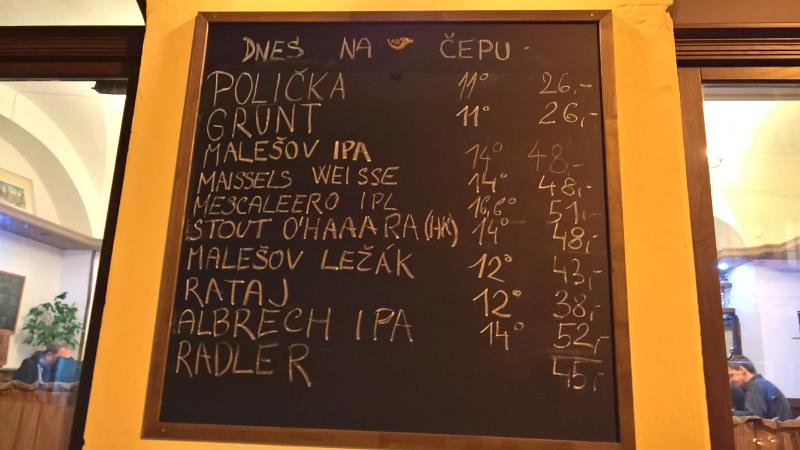 DNEŠ NA ČEPU
POLIČKA 11° 26,-
GRUNT 11° 26,-
MALEŠOV IPA 14° 48,-
MAISSELS WEISSE 14° 48,-
MESCALEERO IPL 16,6° 51,-
STOUT O'HAAARA (HK) 14° 48,-
MALEŠOV LEŽÁK 12° 43,-
RATAJ 12° 38,-
ALBRECH IPA 14° 52,-
RADLER 45,-